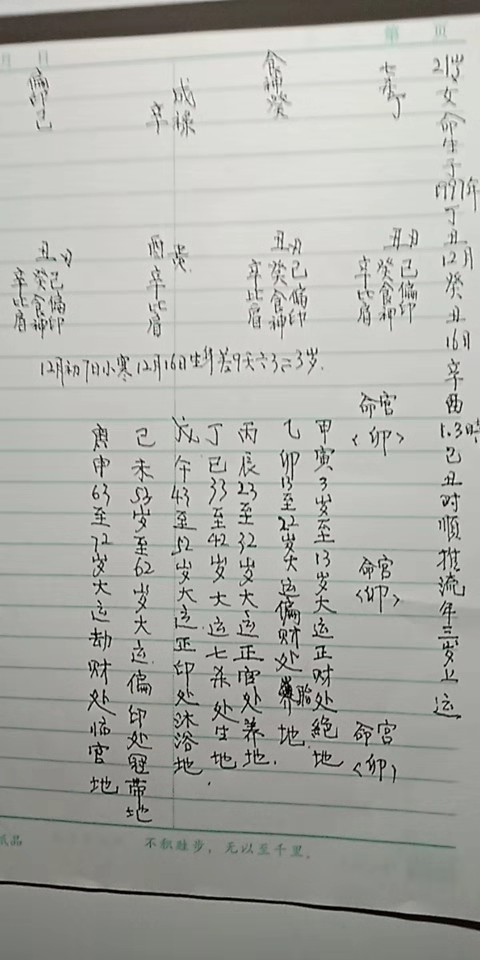 第 页
月 日
21岁女命生于1997年丁丑12月癸丑16日辛酉1.3時己丑时順推流年三岁上运
七杀丁
食神癸
戍祿
辛
偏印己
丑月
己偏印
癸食神
辛比肩
丑月
己偏印
癸食神
辛比肩
酉 贵
辛比肩
丑月
己偏印
癸食神
辛比肩
12月初7日小寒12月16日生年差9天六3=3岁.
命宫
<卯>
命宫
<卯>
命宫
<卯>
甲寅3岁至13岁大运正财处絕地
乙卯13至22岁大运偏财处胎地.
丙辰23至32岁大运正官处养地.
丁巳33至42岁大运七杀处生地.
戊午43至52岁大运正印处沐浴地
己未53岁至62岁大运偏印处冠带地
庚申63至72岁大运劫财处临官地
纸品
不积跬步，无以至千里.